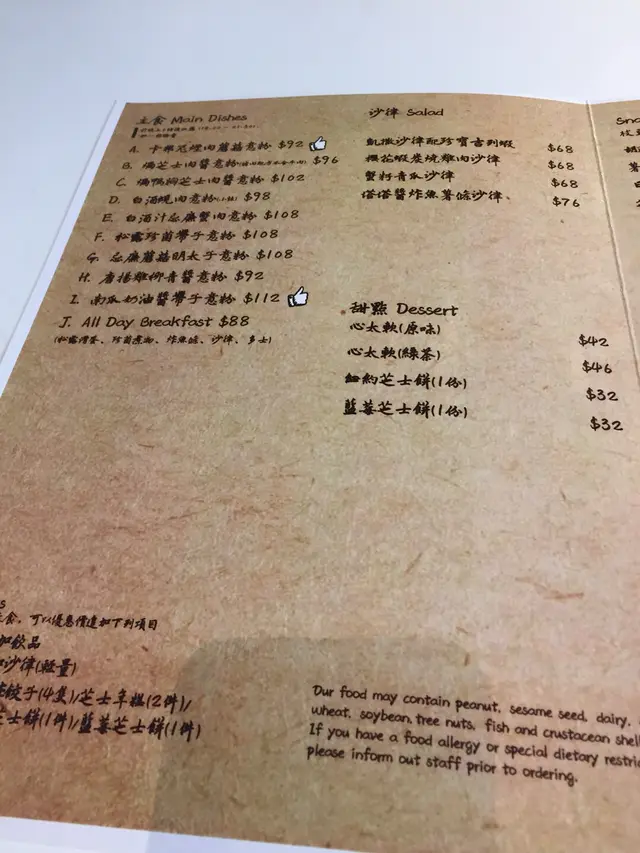 主食 Main Dishes
A. 卡邦尼燻肉蘑菇意粉 $92
B. 焗芝士肉醬意粉 $96
C. 焗鴨胸芝士肉醬意粉 $102
D. 白酒蜆肉意粉 $98
E. 白酒汁忌廉蟹肉意粉 $108
F. 松露珍菌帶子意粉 $108
G. 忌廉蘑菇明太子意粉 $108
H. 唐揚雞柳青醬意粉 $92
I. 南瓜奶油醬帶子意粉 $112
J. All Day Breakfast $88
沙律 Salad
凱撒沙律配珍寶吉列蝦 $68
櫻花蝦炭燒雞肉沙律 $68
蟹籽青瓜沙律 $68
塔塔醬炸魚薯條沙律 $76
甜點 Dessert
心太軟(原味) $42
心太軟(綠茶) $46
紐約芝士餅(1份) $32
藍莓芝士餅(1份) $32
主食, 可以優惠價追加下列項目
加飲品
沙律(輕量)
餃子(4隻)/芝士年糕(2件)/
芝士餅(1件)/藍莓芝士餅(1件)
Our food may contain peanut, sesame seed, dairy,
wheat, soybean, tree nuts, fish and crustacean
If you have a food allergy or special dietary
please inform out staff prior to ordering.